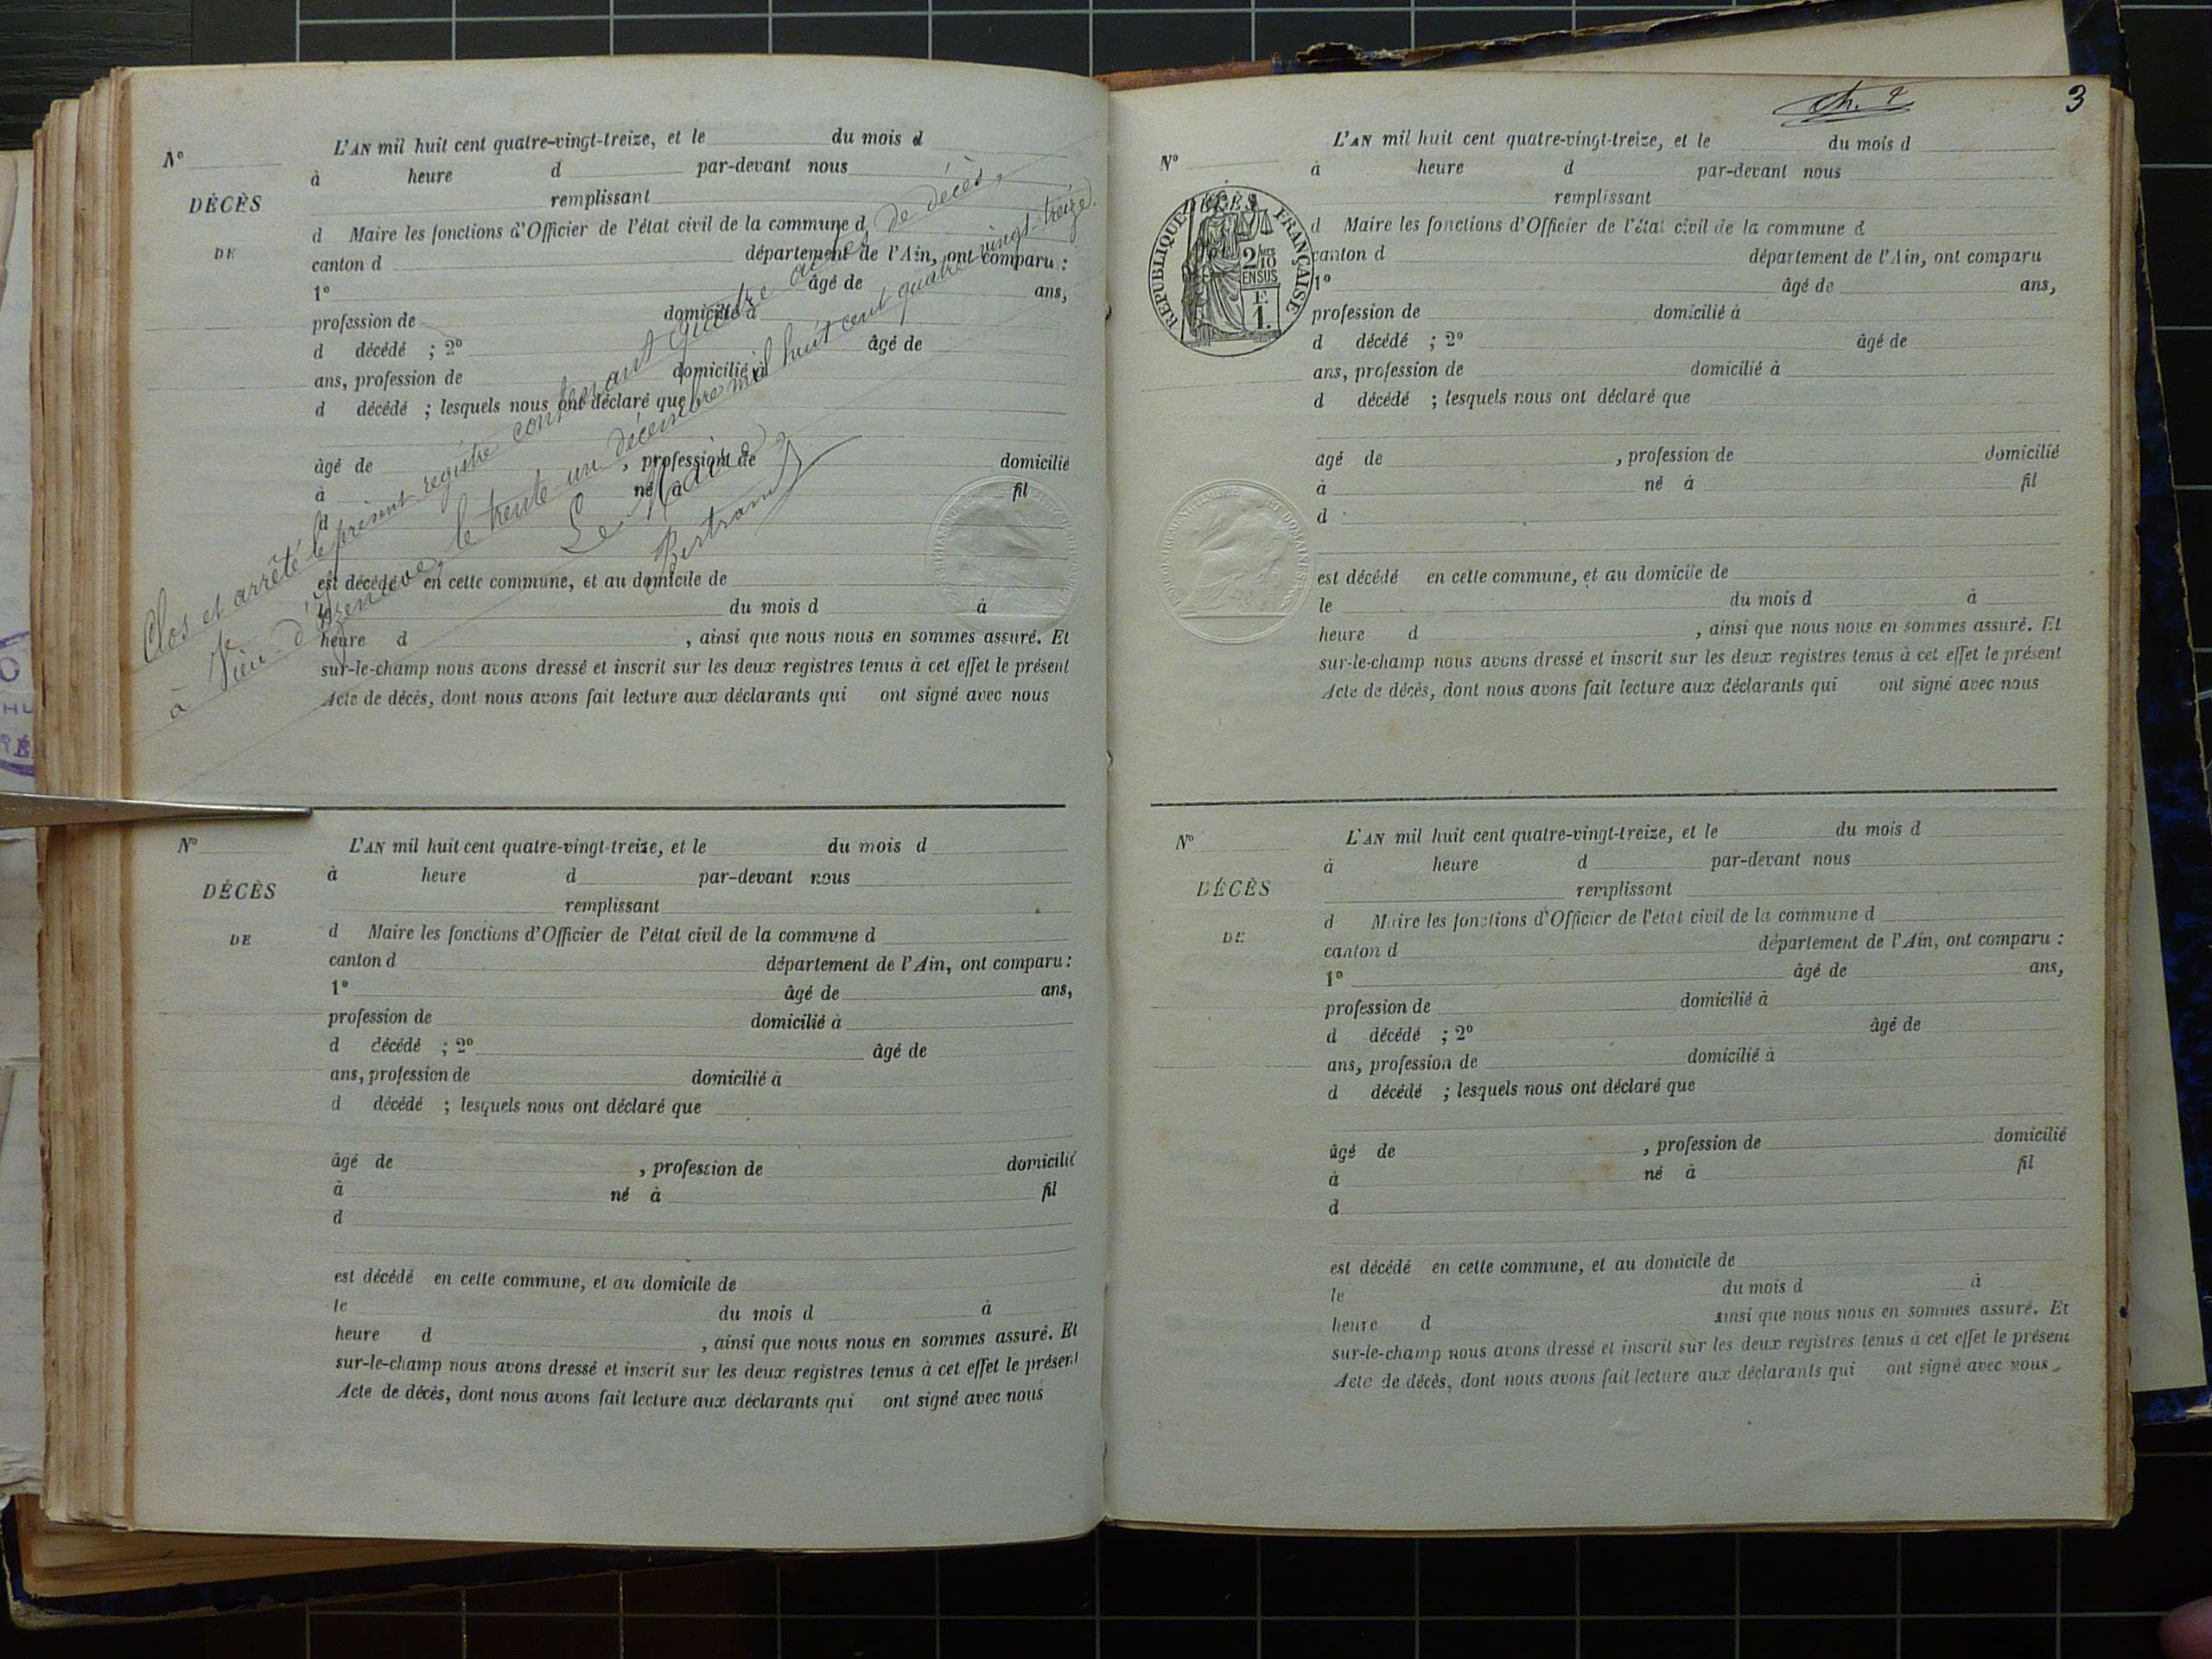 N°
DÉCÈS
DE
L'AN mil huit cent quatre-vingt-treize, et le du mois d
à heure d par-devant nous
remplissant
d Maire les fonctions d'Officier de l'état civil de la commune d
canton d département de l'Ain, ont comparu :
1° âgé de ans,
profession de domicilié à
d décédé ; 2° âgé de
ans, profession de domicilié à
d décédé ; lesquels nous ont déclaré que
âgé de , profession de domicilié
à né à fil
d
est décédé en cette commune, et au domicile de
le du mois d à
heure d , ainsi que nous nous en sommes assuré. Et
sur-le-champ nous avons dressé et inscrit sur les deux registres tenus à cet effet le présent
Acte de décès, dont nous avons fait lecture aux déclarants qui ont signé avec nous
Clos et arrêté le présent registre contenant quatre actes de décès,
à Vieu-d'Izenave, le trente-un décembre mil huit cent quatre-vingt-treize.
Le Maire
Bertrand
N°
DÉCÈS
DE
L'AN mil huit cent quatre-vingt-treize, et le du mois d
à heure d par-devant nous
remplissant
d Maire les fonctions d'Officier de l'état civil de la commune d
canton d département de l'Ain, ont comparu :
1° âgé de ans,
profession de domicilié à
d décédé ; 2° âgé de
ans, profession de domicilié à
d décédé ; lesquels nous ont déclaré que
âgé de , profession de domicilié
à né à fil
d
est décédé en cette commune, et au domicile de
le du mois d à
heure d , ainsi que nous nous en sommes assuré. Et
sur-le-champ nous avons dressé et inscrit sur les deux registres tenus à cet effet le présent
Acte de décès, dont nous avons fait lecture aux déclarants qui ont signé avec nous
3
N°
DÉCÈS
RÉPUBLIQUE FRANÇAISE
2/10
EN SUS
1.
L'AN mil huit cent quatre-vingt-treize, et le du mois d
à heure d par-devant nous
remplissant
d Maire les fonctions d'Officier de l'état civil de la commune d
canton d département de l'Ain, ont comparu
1° âgé de ans,
profession de domicilié à
d décédé ; 2° âgé de
ans, profession de domicilié à
d décédé ; lesquels nous ont déclaré que
âgé de , profession de domicilié
à né à fil
d
est décédé en cette commune, et au domicile de
le du mois d à
heure d , ainsi que nous nous en sommes assuré. Et
sur-le-champ nous avons dressé et inscrit sur les deux registres tenus à cet effet le présent
Acte de décès, dont nous avons fait lecture aux déclarants qui ont signé avec nous
N°
DÉCÈS
DE
L'AN mil huit cent quatre-vingt-treize, et le du mois d
à heure d par-devant nous
remplissant
d Maire les fonctions d'Officier de l'état civil de la commune d
canton d département de l'Ain, ont comparu :
1° âgé de ans,
profession de domicilié à
d décédé ; 2° âgé de
ans, profession de domicilié à
d décédé ; lesquels nous ont déclaré que
âgé de , profession de domicilié
à né à fil
d
est décédé en cette commune, et au domicile de
le du mois d à
heure d ainsi que nous nous en sommes assuré. Et
sur-le-champ nous avons dressé et inscrit sur les deux registres tenus à cet effet le présent
Acte de décès, dont nous avons fait lecture aux déclarants qui ont signé avec nous